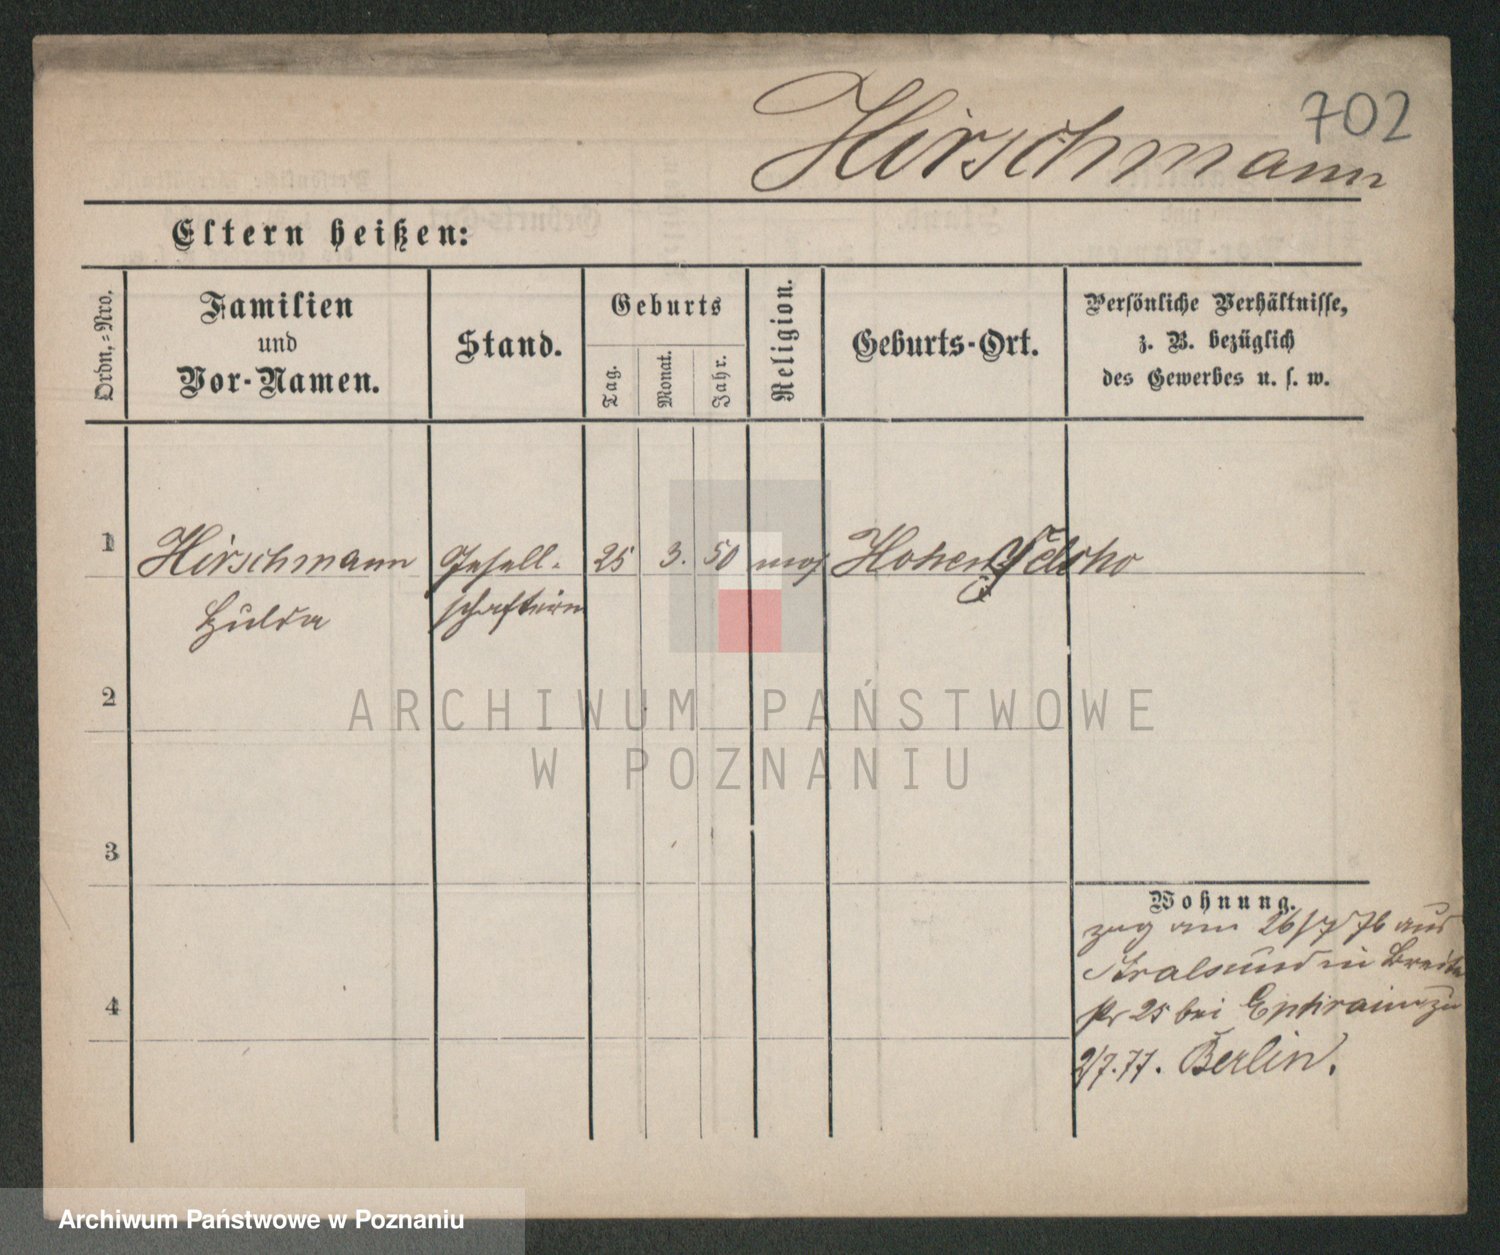 702
Hirschmann
Eltern heißen:
Ordn.-Nro.
Familien
und
Vor-Namen.
Stand.
Geburts
Tag.
Monat.
Jahr.
Religion.
Geburts-Ort.
Persönliche Verhältnisse,
z. B. bezüglich
des Gewerbes u. s. w.
1 Hirschmann Gesell- 25 3. 50 mos Hohen
Hulda schafterin
2
ARCHIWUM PAŃSTWOWE
W POZNANIU
3
Wohnung.
zog am 26/7 76 aus
Stralsund in Breite
str 25 bei Ephraim zu
4
2/7.77. Berlin.
Archiwum Państwowe w Poznaniu